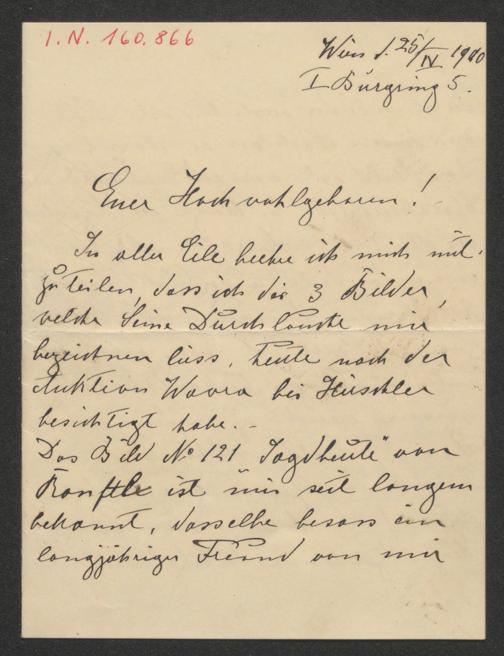 I.N. 160.866
Wien d. 25/IV 1900
I Burgring 5.
Euer Hochwohlgeboren!
In aller Eile beehre ich mich mit-
zuteilen, dass ich die 3 Bilder,
welche Seine Durchlaucht mir
bezeichnen liess, heute nach der
Auktion Wawra bei Hirschler
besichtigt habe. -
Das Bild No 121 "Jagdbeute" von
Ranftl ist mir seit langem
bekannt, dasselbe besass ein
langjähriger Freund von mir